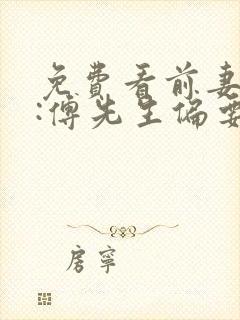 免费看前妻
:傅先生偏要
房寧